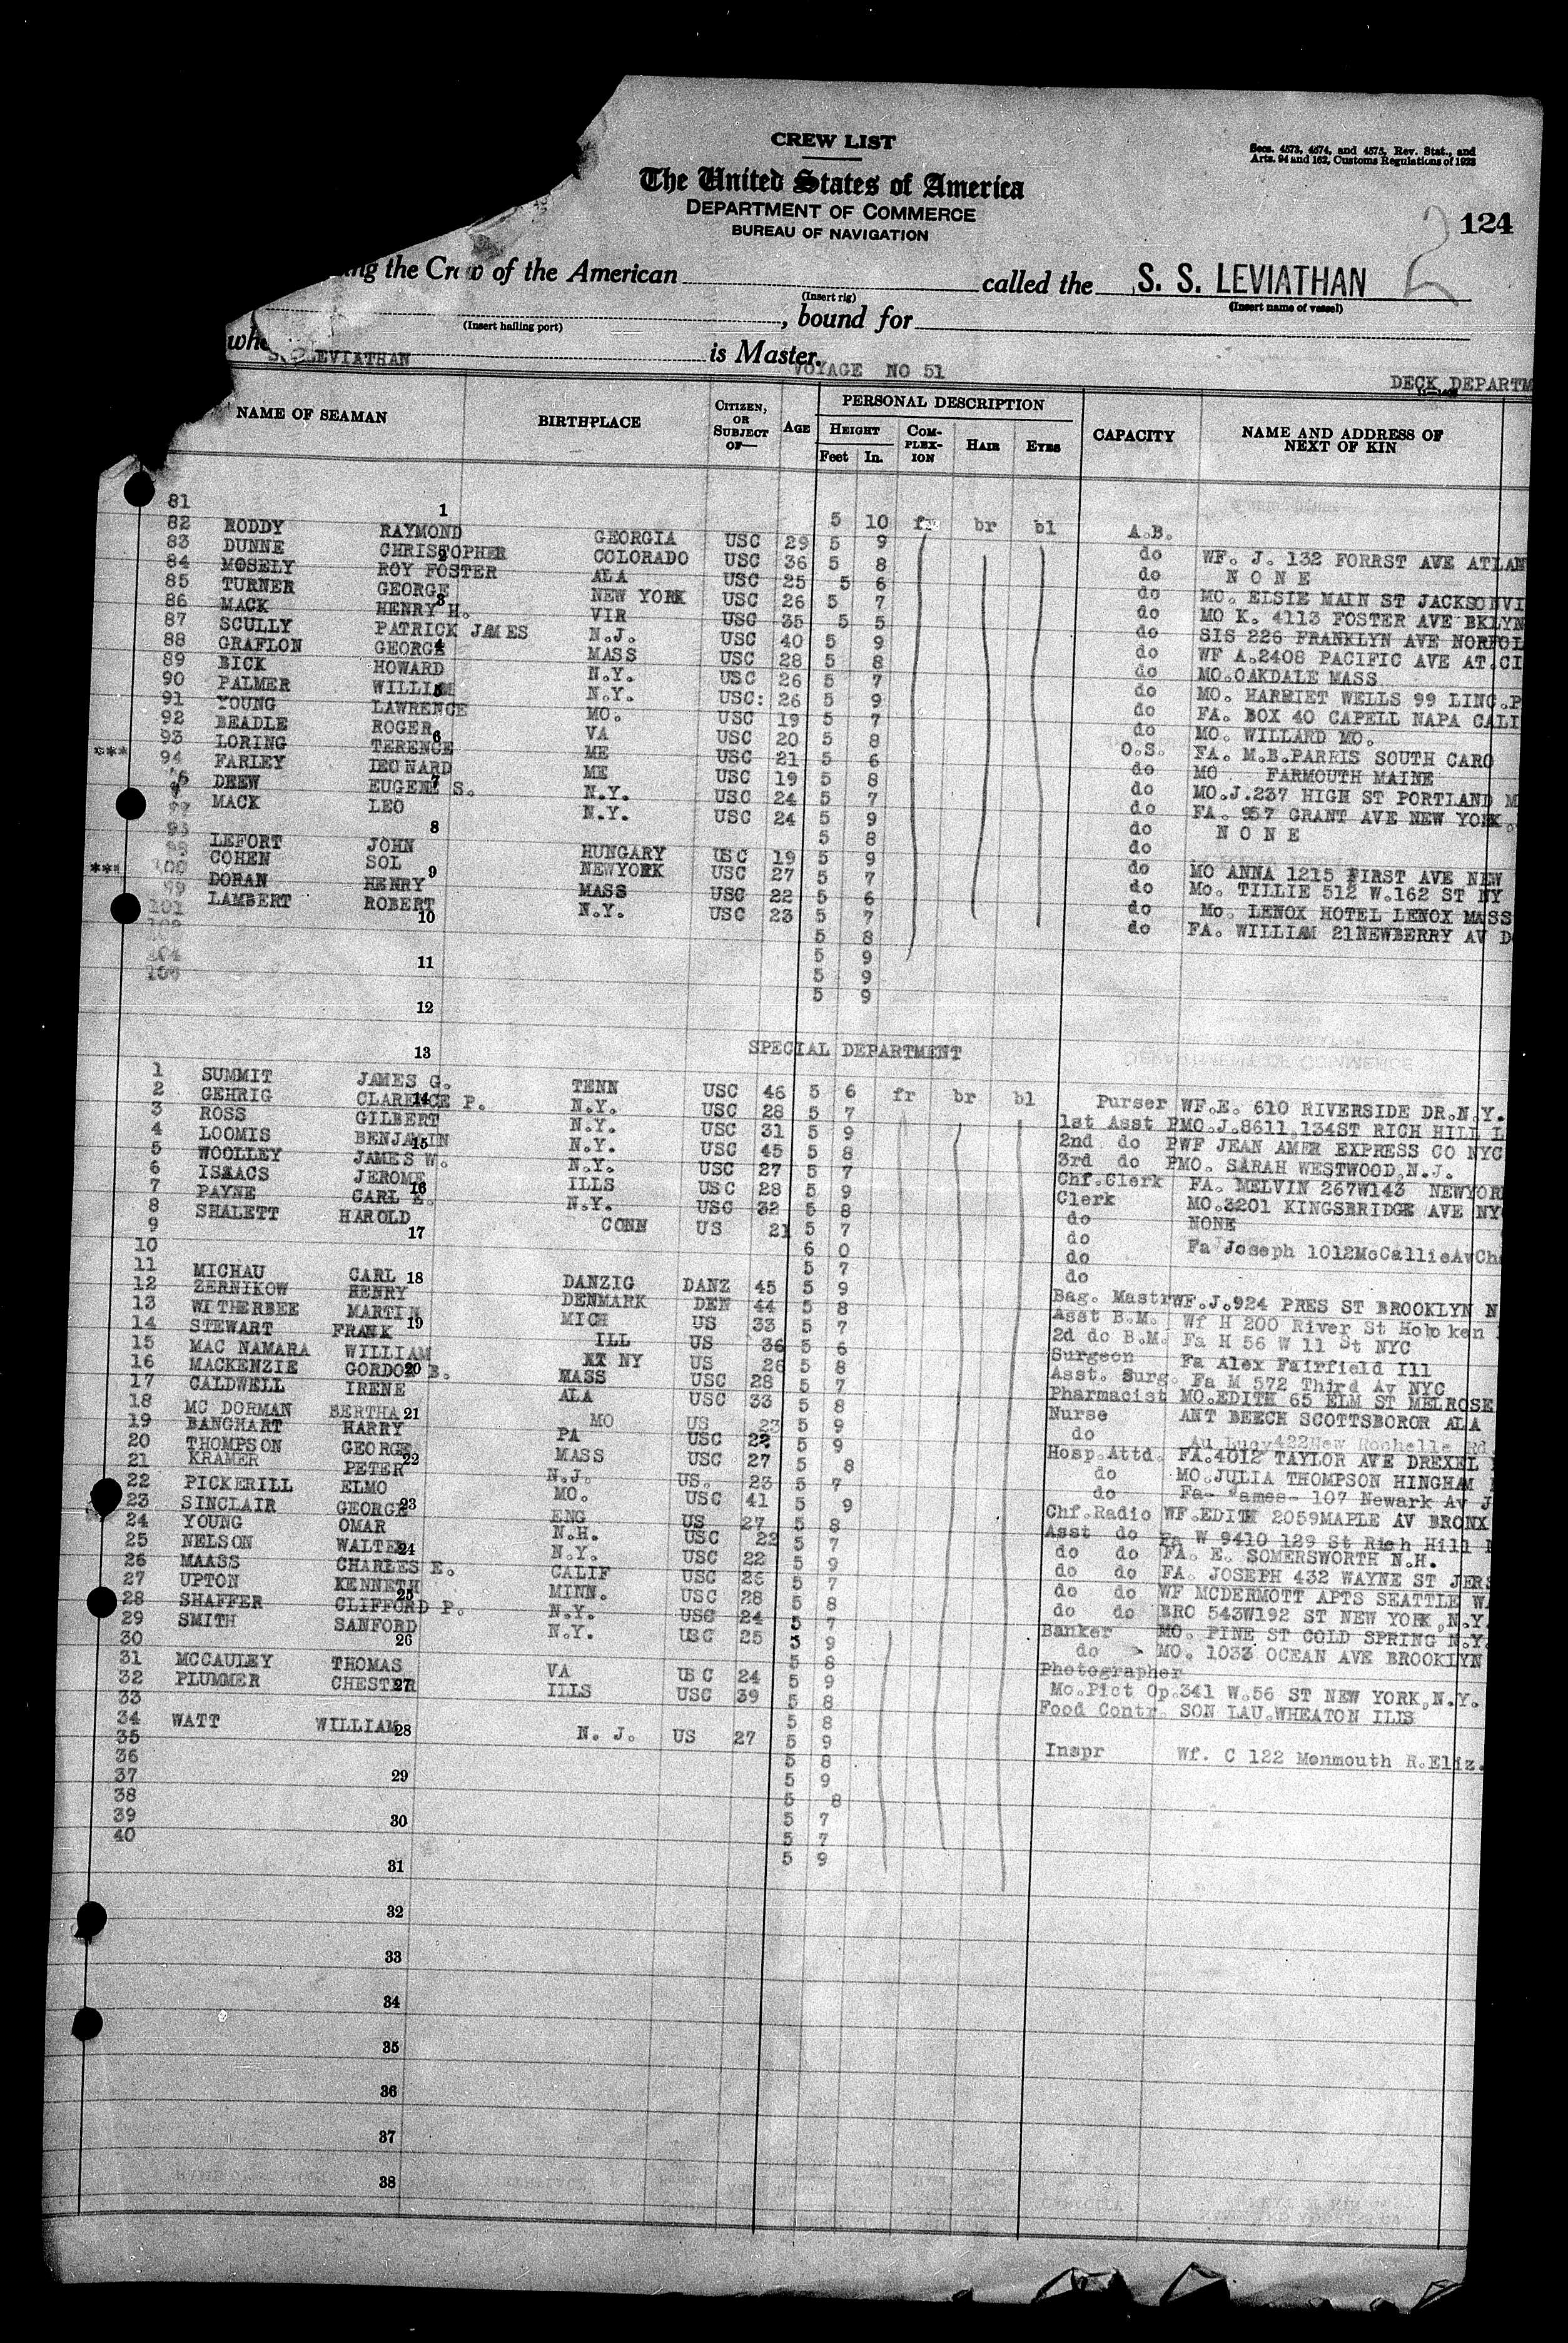 CREW LIST
Secs. 4573, 4574, and 4575, Rev. Stat., and
Arts. 94 and 162, Customs Regulations of 1923
The United States of America
DEPARTMENT OF COMMERCE
BUREAU OF NAVIGATION
124
2
the Crew of the American called the S. S. LEVIATHAN
(Insert rig) (Insert name of vessel)
, bound for
(Insert hailing port)
is Master.
LEVIATHAN VOYAGE NO 51 DECK DEPARTM
NAME OF SEAMAN BIRTHPLACE CITIZEN, OR SUBJECT OF— AGE PERSONAL DESCRIPTION CAPACITY NAME AND ADDRESS OF NEXT OF KIN
HEIGHT COMPLEXION HAIR EYES
Feet In.
81 1 5 10 br bl A.B.
82 RODDY RAYMOND GEORGIA USC 29 5 9 do WF. J. 132 FORRST AVE ATLAN
83 DUNNE CHRISTOPHER COLORADO USC 36 5 8 do N O N E
84 MOSELY ROY FOSTER ALA USC 25 5 6 do MO. ELSIE MAIN ST JACKSONVI
85 TURNER GEORGE NEW YORK USC 26 5 7 do MO K. 4113 FOSTER AVE BKLYN
86 MACK HENRY H. VIR USC 35 5 5 do SIS 226 FRANKLYN AVE NORFOL
87 SCULLY PATRICK JAMES N.J. USC 40 5 9 do WF A.2408 PACIFIC AVE AT.CI
88 GRAFLON GEORGE MASS USC 28 5 8 do MO.OAKDALE MASS
89 BICK HOWARD N.Y. USC 26 5 7 do MO. HARRIET WELLS 99 LINC.P
90 PALMER WILLIAM N.Y. USC: 26 5 9 do FA. BOX 40 CAPELL NAPA CALI
91 YOUNG LAWRENCE MO. USC 19 5 7 do MO. WILLARD MO.
92 BEADLE ROGER VA USC 20 5 8 O.S. FA. M.B.PARRIS SOUTH CARO
93 LORING TERENCE ME USC 21 5 6 do MO FARMOUTH MAINE
*** 94 FARLEY LEONARD ME USC 19 5 8 do MO.J.237 HIGH ST PORTLAND M
DREW EUGENE S. N.Y. USC 24 5 7 do FA. 957 GRANT AVE NEW YORK.
MACK LEO N.Y. USC 24 5 9 do N O N E
8 5 8 do
LEFORT JOHN HUNGARY USC 19 5 9 do MO ANNA 1215 FIRST AVE NEW
COHEN SOL NEWYORK USC 27 5 7 do Mo. TILLIE 512 W.162 ST NY
*** 100 DORAN HENRY MASS USC 22 5 6 do Mo. LENOX HOTEL LENOX MASS
99 LAMBERT ROBERT N.Y. USC 23 5 7 do FA. WILLIAM 21NEWBERRY AV D
101 10 5 8
11 5 9
104 5 9
12 5 9
13 SPECIAL DEPARTMENT
1 SUMMIT JAMES G. TENN USC 46 5 6 fr br bl Purser WF.E. 610 RIVERSIDE DR.N.Y.
2 GEHRIG CLARENCE P. N.Y. USC 28 5 7 1st Asst PMO.J.8611 134ST RICH HILL L
3 ROSS GILBERT N.Y. USC 31 5 9 2nd do PWF JEAN AMER EXPRESS CO NYC
4 LOOMIS BENJAMIN N.Y. USC 45 5 8 3rd do PMO. SARAH WESTWOOD,N.J.
5 WOOLLEY JAMES W. N.Y. USC 27 5 7 Chf.Clerk FA. MELVIN 267W143 NEWYOR
6 ISAACS JEROME ILLS USC 28 5 9 Clerk MO.3201 KINGSBRIDGE AVE NY
7 PAYNE CARL E. N.Y. USC 32 5 8 do NONE
8 SHALETT HAROLD CONN US 21 5 7 do Fa Joseph 1012McCallieAvCh
9 17 6 0 do
10 5 7 do
11 MICHAU CARL DANZIG DANZ 45 5 9 Bag. MastrWF.J.924 PRES ST BROOKLYN N
12 ZERNIKOW HENRY DENMARK DEN 44 5 8 Asst B.M. Wf H 200 River St Hoboken
13 WITHERBEE MARTIN MICH US 33 5 7 2d do B.M. Fa H 56 W 11 St NYC
14 STEWART FRANK ILL US 36 5 6 Surgeon Fa Alex Fairfield Ill
15 MAC NAMARA WILLIAM NY US 26 5 8 Asst. Surg. Fa M 572 Third Av NYC
16 MACKENZIE GORDON B. MASS USC 28 5 7 Pharmacist MO.EDITH 65 ELM ST MELROSE
17 CALDWELL IRENE ALA USC 33 5 8 Nurse ANT BEECH SCOTTSBOROR ALA
18 MC DORMAN BERTHA MO US 23 5 9 do Au Lucy422New Rochelle Rd.
19 BANGHART HARRY PA USC 22 5 9 Hosp.Attd. FA.4012 TAYLOR AVE DREXEL
20 THOMPSON GEORGE MASS USC 27 5 8 do MO.JULIA THOMPSON HINGHAM
21 KRAMER PETER N.J. US. 23 5 7 do Fa- James- 107 Newark Av J
22 PICKERILL ELMO MO. USC 41 5 9 Chf.Radio WF.EDITH 2059MAPLE AV BRONX
23 SINCLAIR GEORGE ENG US 27 5 8 Asst do Fa W 9410 129 St Rich Hill
24 YOUNG OMAR N.H. USC 22 5 7 do do FA. E. SOMERSWORTH N.H.
25 NELSON WALTER N.Y. USC 22 5 9 do do FA. JOSEPH 432 WAYNE ST JERS
26 MAASS CHARLES E. CALIF USC 26 5 7 do do WF MCDERMOTT APTS SEATTLE W
27 UPTON KENNETH MINN. USC 28 5 8 do do BRO 543W192 ST NEW YORK,N.Y.
28 SHAFFER CLIFFORD P. N.Y. USC 24 5 7 Banker MO. PINE ST COLD SPRING N.Y.
29 SMITH SANFORD N.Y. USC 25 5 9 do MO. 1033 OCEAN AVE BROOKLYN
30 26 5 8 Photographer
31 MCCAULEY THOMAS VA USC 24 5 9 Mo.Pict Op.341 W.56 ST NEW YORK,N.Y.
32 PLUMMER CHESTER ILLS USC 39 5 8 Food Contr. SON LAU.WHEATON ILLS
33 5 8
34 WATT WILLIAM N. J. US 27 5 9 Inspr Wf. C 122 Monmouth R.Eliz.
35 28 5 8
36 5 9
37 29 5 8
38 5 7
39 30 5 7
40 5 9
31
32
33
34
35
36
37
38